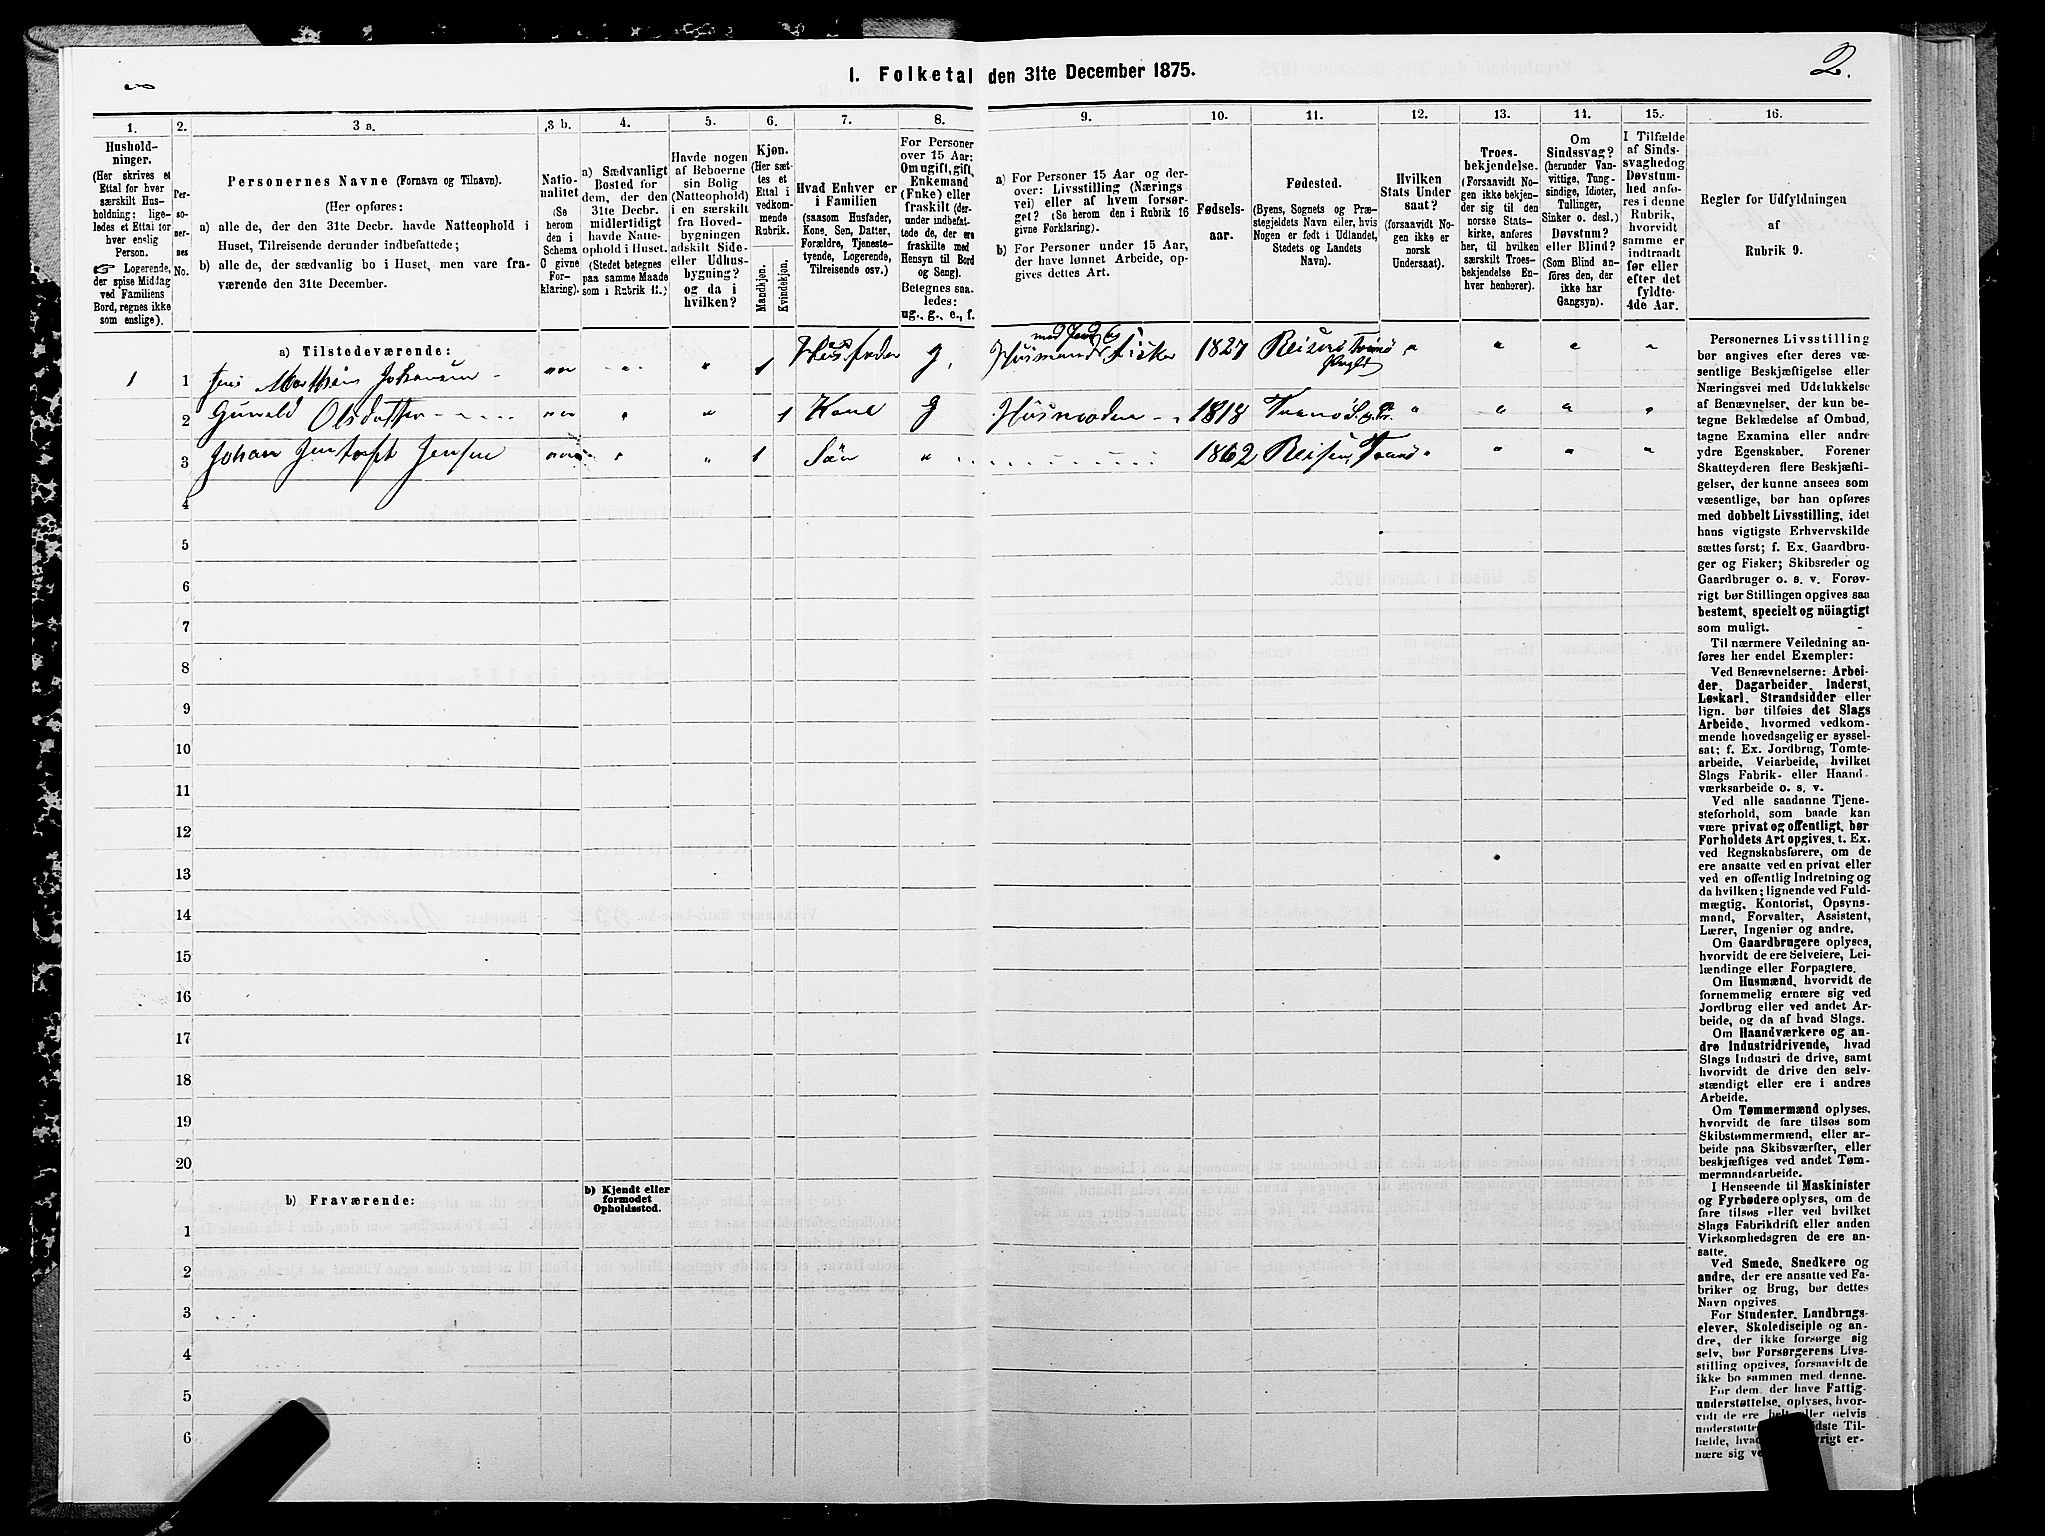 2.
I. Folketal den 31te December 1875.
1.
Hushold-
ninger.
(Her skrives et
Ettal for hver
særskilt Hus-
holdning; lige-
ledes et Ettal for
hver enslig
Person.
☞ Logerende,
der spise Middag
ved Familiens
Bord, regnes ikke
som enslige).
2.
Per-
so-
ner-
nes
No.
3 a.
Personernes Navne (Fornavn og Tilnavn).
(Her opføres:
a) alle de, der den 31te Decbr. havde Natteophold i
Huset, Tilreisende derunder indbefattede;
b) alle de, der sædvanlig bo i Huset, men vare fra-
værende den 31te December.
3 b.
Natio-
nalitet
(Se
herom
den i
Schema
C givne
For-
klaring).
4.
a) Sædvanligt
Bosted for
dem, der den
31te Decbr.
midlertidigt
havde Natte-
ophold i Huset.
(Stedet betegnes
paa samme Maade
som i Rubrik 11.)
5.
Havde nogen
af Beboerne
sin Bolig
(Natteophold)
i en særskilt
fra Hoved-
bygningen
adskilt Side-
eller Udhus-
bygning?
og da i
hvilken?
6.
Kjøn.
(Her sæt-
tes et
Ettal i
vedkom-
mende
Rubrik.
Mandkjøn.
Kvindekjøn.
7.
Hvad Enhver er
i Familien
(saasom Husfader,
Kone, Søn, Datter,
Forældre, Tjeneste-
tyende, Logerende,
Tilreisende osv.)
8.
For Personer
over 15 Aar:
Om ugift, gift,
Enkemand
(Enke) eller
fraskilt (der-
under indbefat-
tede de, der ere
fraskilte med
Hensyn til Bord
og Seng).
Betegnes saa-
ledes:
ug., g., e., f.
9.
a) For Personer 15 Aar og der-
over: Livsstilling (Nærings-
vei) eller af hvem forsør-
get? (Se herom den i Rubrik 16
givne Forklaring).
b) For Personer under 15 Aar,
der have lønnet Arbeide, op-
gives dettes Art.
10.
Fødsels-
aar.
11.
Fødested.
(Byens, Sognets og Præ-
stegjeldets Navn eller, hvis
Nogen er født i Udlandet,
Stedets og Landets
Navn).
12.
Hvilken
Stats Under
saat?
(forsaavidt No-
gen ikke er
norsk
Undersaat).
13.
Troes-
bekjendelse.
(Forsaavidt No-
gen ikke bekjen-
der sig til den
norske Stats-
kirke, anføres
her, til hvilken
særskilt Troes-
bekjendelse En-
hver henhører).
14.
Om
Sindssvag?
(herunder Van-
vittige, Tung-
sindige, Idioter,
Tullinger,
Sinker o. desl.)
Døvstum?
eller Blind?
(Som Blind an-
føres den, der
ikke har
Gangsyn).
15.
I Tilfælde
af Sinds-
svaghed og
Døvstum-
hed anfø-
res i denne
Rubrik,
hvorvidt
samme er
indtraadt
før eller
efter det
fyldte
4de Aar.
16.
Regler for Udfyldningen
af
Rubrik 9.
a) Tilstedeværende:
1 1 Jens Johansen nor " " 1 Husfader g. Husmand med Jord Fisker 1827 Reisen Tranø " " " "
2 Olsdatter nor " " 1 Kone g Husmoder 1818 Tranø " " " "
3 Johan Jentoft Jensen nor " " 1 Søn " 1862 Reisen, Tranø " " " "
4
5
6
7
8
9
10
11
12
13
14
15
16
17
18
19
20
b) Fraværende:
b) Kjendt eller
formodet
Opholdssted.
1
2
3
4
5
6
Personernes Livsstilling
bør angives efter deres væ-
sentlige Beskjæftigelse eller
Næringsvei med Udelukkelse
af Benævnelser, der kun be-
tegne Beklædelse af Ombud,
tagne Examina eller andre
ydre Egenskaber. Forener
Skatteyderen flere Beskjæfti-
gelser, der kunne ansees som
væsentlige, bør han opføres
med dobbelt Livsstilling, idet
hans vigtigste Erhvervskilde
sættes først; f. Ex. Gaardbru-
ger og Fisker; Skibsreder og
Gaardbruger o. s. v. Forøv-
rigt bør Stillingen opgives saa
bestemt, specielt og nöiagtigt
som muligt.
Til nærmere Veiledning an-
føres her endel Exempler:
Ved Benævnelserne: Arbei-
der, Dagarbeider, Inderst,
Løskarl, Strandsidder eller
lign. bør tilføies det Slags
Arbeide, hvormed vedkom-
mende hovedsagelig er syssel-
sat; f. Ex. Jordbrug, Tomte-
arbeide, Veiarbeide, hvilket
Slags Fabrik- eller Haand-
værksarbeide o. s. v.
Ved alle saadanne Tjene-
steforhold, som baade kan
være privat og offentligt, bør
Forholdets Art opgives, t. Ex.
ved Regnskabsførere, om de
ere ansatte ved en privat eller
ved en offentlig Indretning og
da hvilken; lignende ved Fuld-
mægtig, Kontorist, Opsyns-
mand, Forvalter, Assistent,
Lærer, Ingeniør og andre.
Om Gaardbrugere oplyses,
hvorvidt de ere Selveiere, Lei-
lændinge eller Forpagtere.
Om Husmænd, hvorvidt de
fornemmelig ernære sig ved
Jordbrug eller ved andet Ar-
beide, og da af hvad Slags.
Om Haandværkere og an-
dre Industridrivende, hvad
Slags Industri de drive, samt
hvorvidt de drive den selv-
stændigt eller ere i andres
Arbeide.
Om Tømmermænd oplyses,
hvorvidt de fare tilsøs som
Skibstømmermænd, eller ar-
beide paa Skibsværfter, eller
beskjæftiges ved andet Tøm-
mermandsarbeide.
I Henseende til Maskinister
og Fyrbødere oplyses, om de
fare tilsøs eller ved hvilket
Slags Fabrikdrift eller anden
Virksomhedsgren de ere an-
satte.
Ved Smede, Snedkere og
andre, der ere ansatte ved Fa-
briker og Brug, bør dettes
Navn opgives
For Studenter, Landbrugs-
elever, Skoledisciple og an-
dre, der ikke forsørge sig
selv, bør Forsørgerens Livs-
stilling opgives, forsaavidt de
ikke bo sammen med denne.
For dem, der have Fattig-
understøttelse, oplyses, hvor-
vidt de ere helt eller delvis
understøtte- sidste Til-
fælde, hvad øvrigt er-
nære sig ve